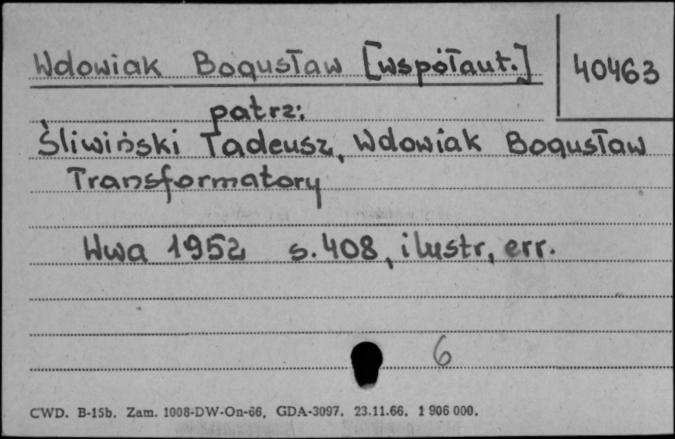 Wdowiak Bogusław [współaut.]
40463
patrz:
Śliwiński Tadeusz, Wdowiak Bogusław
Transformatory
Wwa 1952 s. 408, ilustr, err.
6
CWD. B-15b. Zam. 1008-DW-On-66. GDA-3097. 23.11.66. 1 906 000.